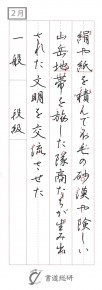 2月
絹や紙を積んで不毛の砂漠や険しい
山岳地帯を旅した隊商たちが生み出
された文明を交流させた
一般 段級
書道総研